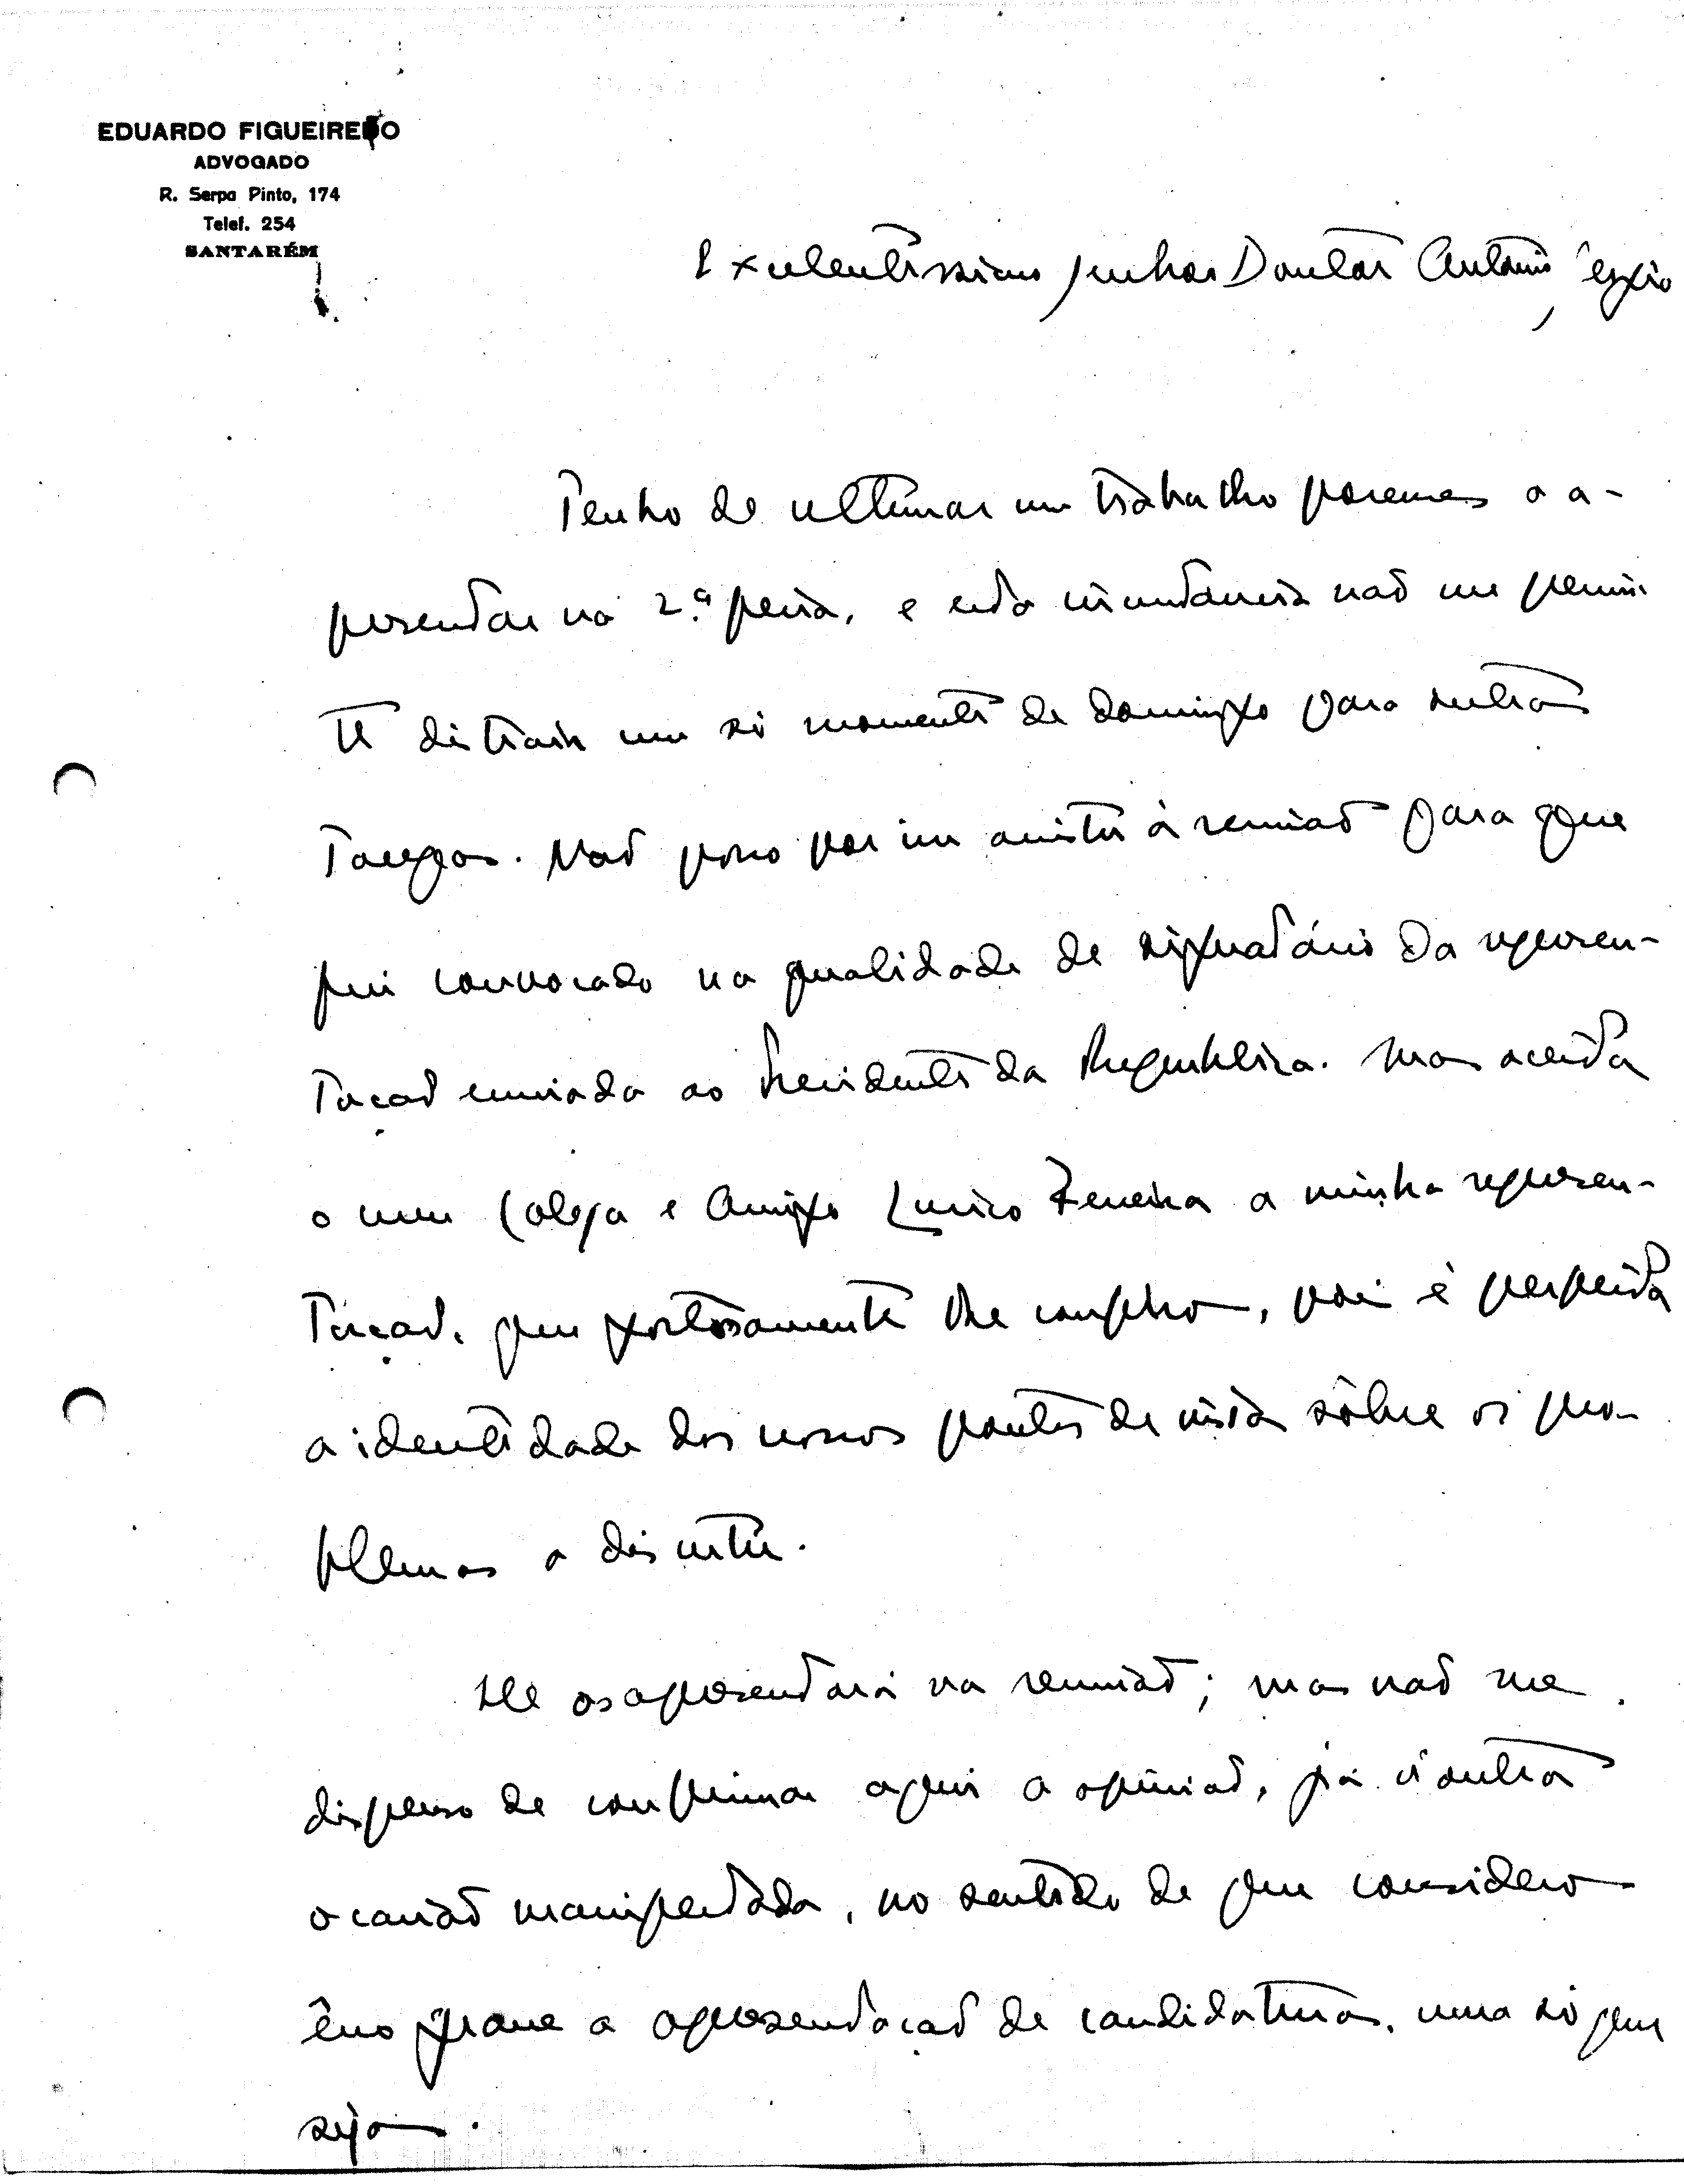 EDUARDO FIGUEIREDO
ADVOGADO
R. Serpa Pinto, 174
Telef. 254
SANTARÉM
Excelentissimo Senhor Doutor António Sérgio
Tenho de ultimar um trabalho forense a a-
presentar na 2.ª feira, e esta circunstancia não me permi-
te distrair um só momento de domingo para outras
tarefas. Não posso por isso assistir à reunião para que
fui convocado na qualidade de signatário da represen-
tação enviada ao Presidente da Republica. Mas aceita
o meu Colega e Amigo Lurico Ferreira a minha represen-
tação, que gostosamente lhe confio, pois é perfeita
a identidade dos nossos pontos de vista sôbre os pro-
blemas a discutir.
Ele os apresentará na reunião; mas não me
dispenso de confirmar aqui a opinião, já n'outra
ocasião manifestada, no sentido de que considero
êrro grave a apresentação de candidaturas, uma só que
seja.